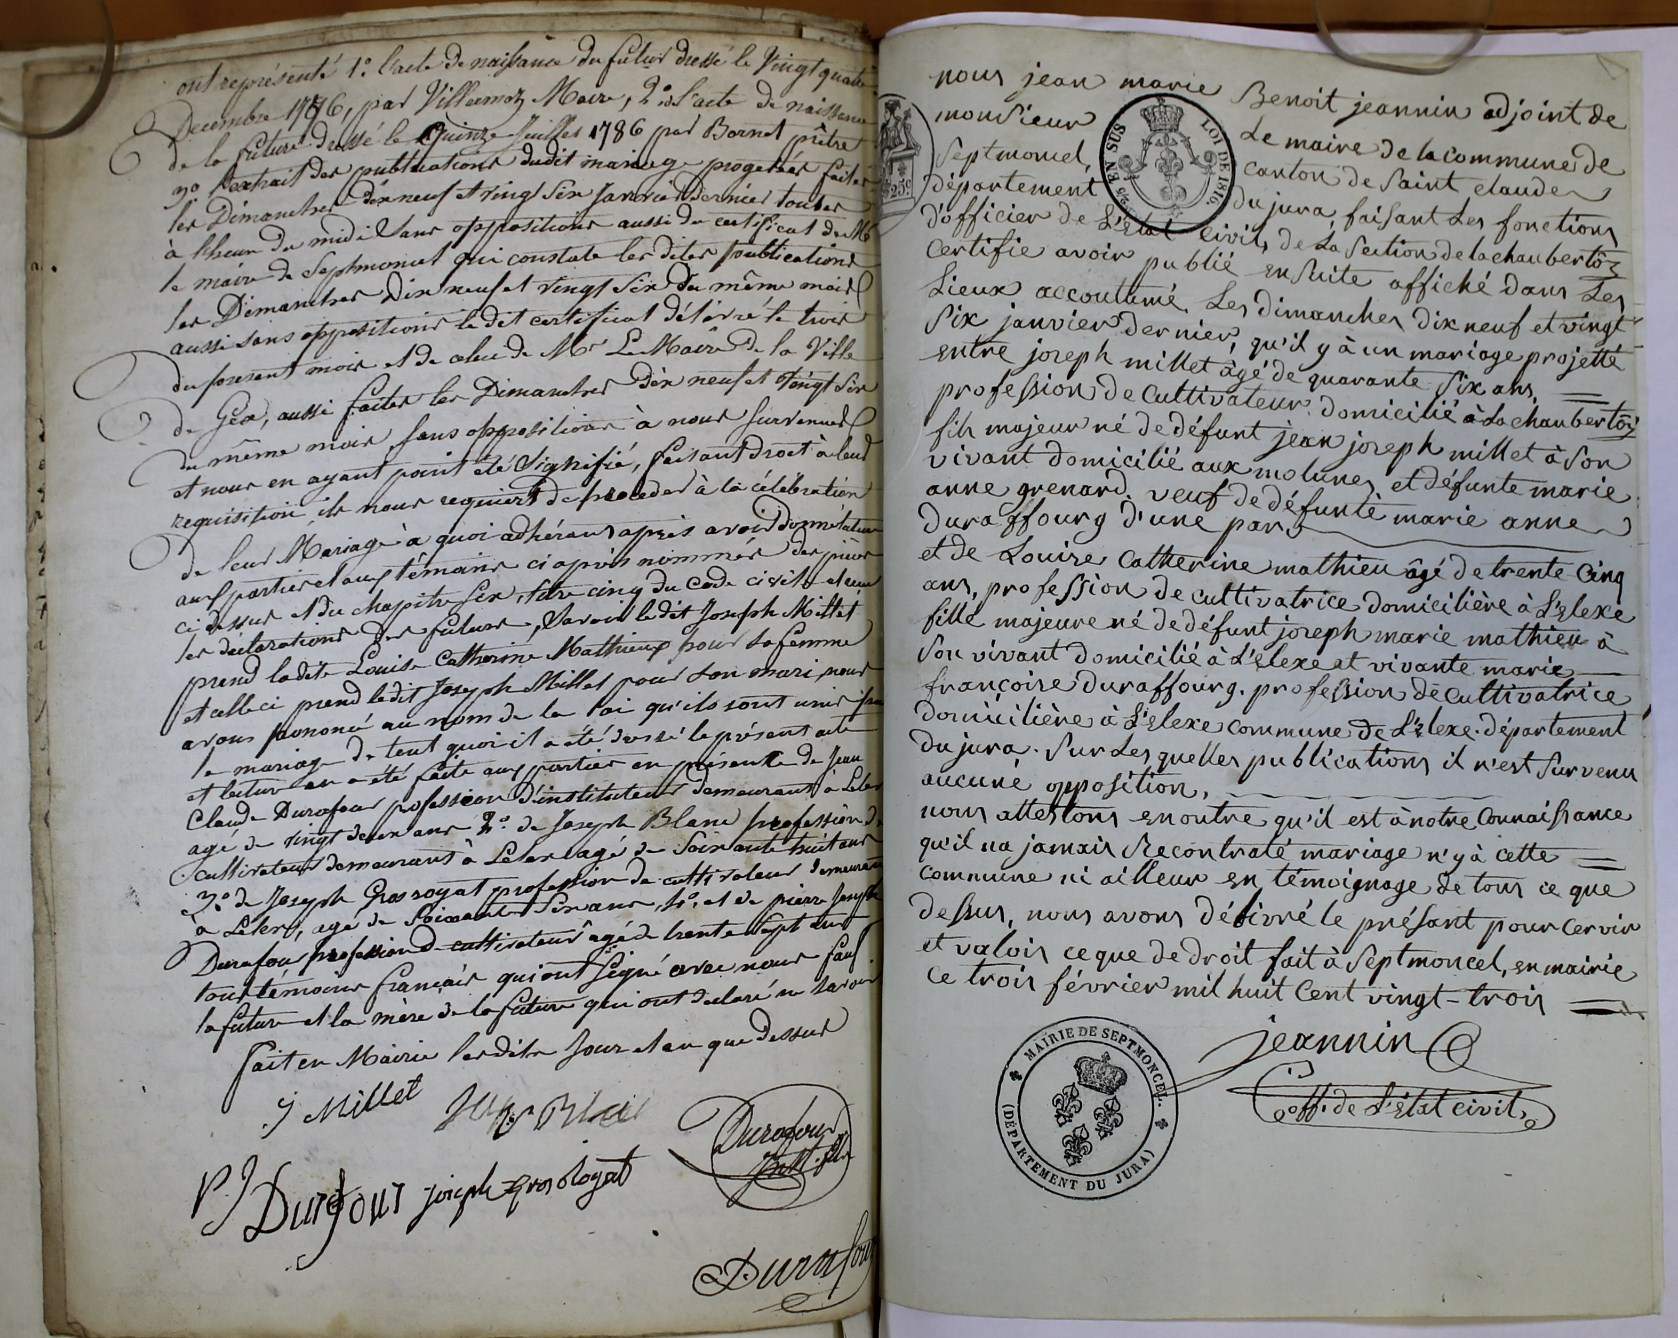 ont représenté 1.° l'acte de naissance du futur dressé le Vingt quatre
Decembre 1776, par Villermoz Maire, 2.° l'acte de naissance
de la future dressé le Quinze Juillet 1786 par Bornet prêtre
3.° l'extrait des publications dudit mariage projettées faites
les Dimanches dix neuf et vingt Six Janvier dernier toutes
à l'heure de midi Sans oppositions aussi du certificat de Mr
le maire de Septmoncel qui constate les dites publications
les Dimanches Dix neuf et vingt Six du même mois
aussi sans oppositions le dit certificat délivré le trois
du present mois et de celui de Mr Le Maire de la Ville
de Gex, aussi faites les Dimanches dix neuf et Vingt Six
du même mois sans oppositions à nous Survenues
et nous en ayant point été Signifié, faisant droit à leur
requisition, ils nous requiert de proceder à la célébration
de leur Mariage à quoi adhérans après avoir donné lecture
aux parties et aux témoins ci après nommés des pièces
ci dessus et du chapitre Six, titre cinq du Code civil et
les déclarations des futurs, Savoir ledit Joseph Millet
prend ladite Louise Catherine Mathieux pour Sa femme
et celle ci prend ledit Joseph Millet pour Son mari, nous
avons prononcé au nom de la loi qu'ils sont unis par
le mariage de tout quoi il a été dressé le présent acte
et lecture en a été faite aux parties en présence de Jean
Claude Durafour profession d'instituteur demeurant à Lelex
agé de vingt deux ans 2.° de Joseph Blanc profession de
cultivateur demeurant à Lelex agé de Soixante huit ans
3.° de Joseph Grosroyat profession de cultivateur demeurant
a Lelex, agé de Soixante Six ans, 4.° et de pierre Joseph
Durafour profession de cultivateur agé de trente Sept ans
tous témoins français qui ont Signé avec nous Sauf
la future et la mère de la future qui ont declaré ne Savoir
fait en Mairie lesdits Jour et an que dessus
J Millet
Blanc
Durafour
P. J Durafour joseph gros Royat
Durafour
nous jean marie Benoit jeannin adjoint de
monsieur Le maire de la commune de
Septmoncel, canton de Saint claude
département du jura, faisant Les fonctions
d'officier de L'Etat Civil, de La Section de la chaubertôz
certifie avoir publié ensuite affiché dans Les
Lieux accoutumé, Les dimanches dix neuf et vingt
Six janvier dernier, qu'il y à un mariage projetté
entre joseph millet âgé de quarante Six ans,
profession de Cultivateur domicilié à La chaubertôz
fils majeur né de défunt jean joseph millet à Son
vivant domicilié aux molunes et défunte marie
anne grenard. veuf de défunte marie anne
duraffourg d'une part
et de Louise Catherine mathieu âgé de trente Cinq
ans, profession de cultivatrice domicilière à L'elexe
fille majeure né de défunt joseph marie mathieu à
Son vivant domicilié à L'elexe et vivante marie
françoise duraffourg. profession de cultivatrice
domicilière à L'elexe commune de L'elexe. département
du jura. Sur Les quelles publications il n'est Survenu
aucune opposition,
nous attestons en outre qu'il est à notre Connaissance
qu'il na jamais Recontraté mariage n'y à cette
commune ni ailleur en témoignage de tous ce que
dessus, nous avons délivré le présant pour cervir
et valoir ce que de droit fait à Septmoncel, en mairie
ce trois février mil huit Cent vingt-trois
jeannin
off. de L'état civil
25c. EN SUS
LOI DE 1816
MAIRIE DE SEPTMONCEL.
(DÉPARTEMENT DU JURA)